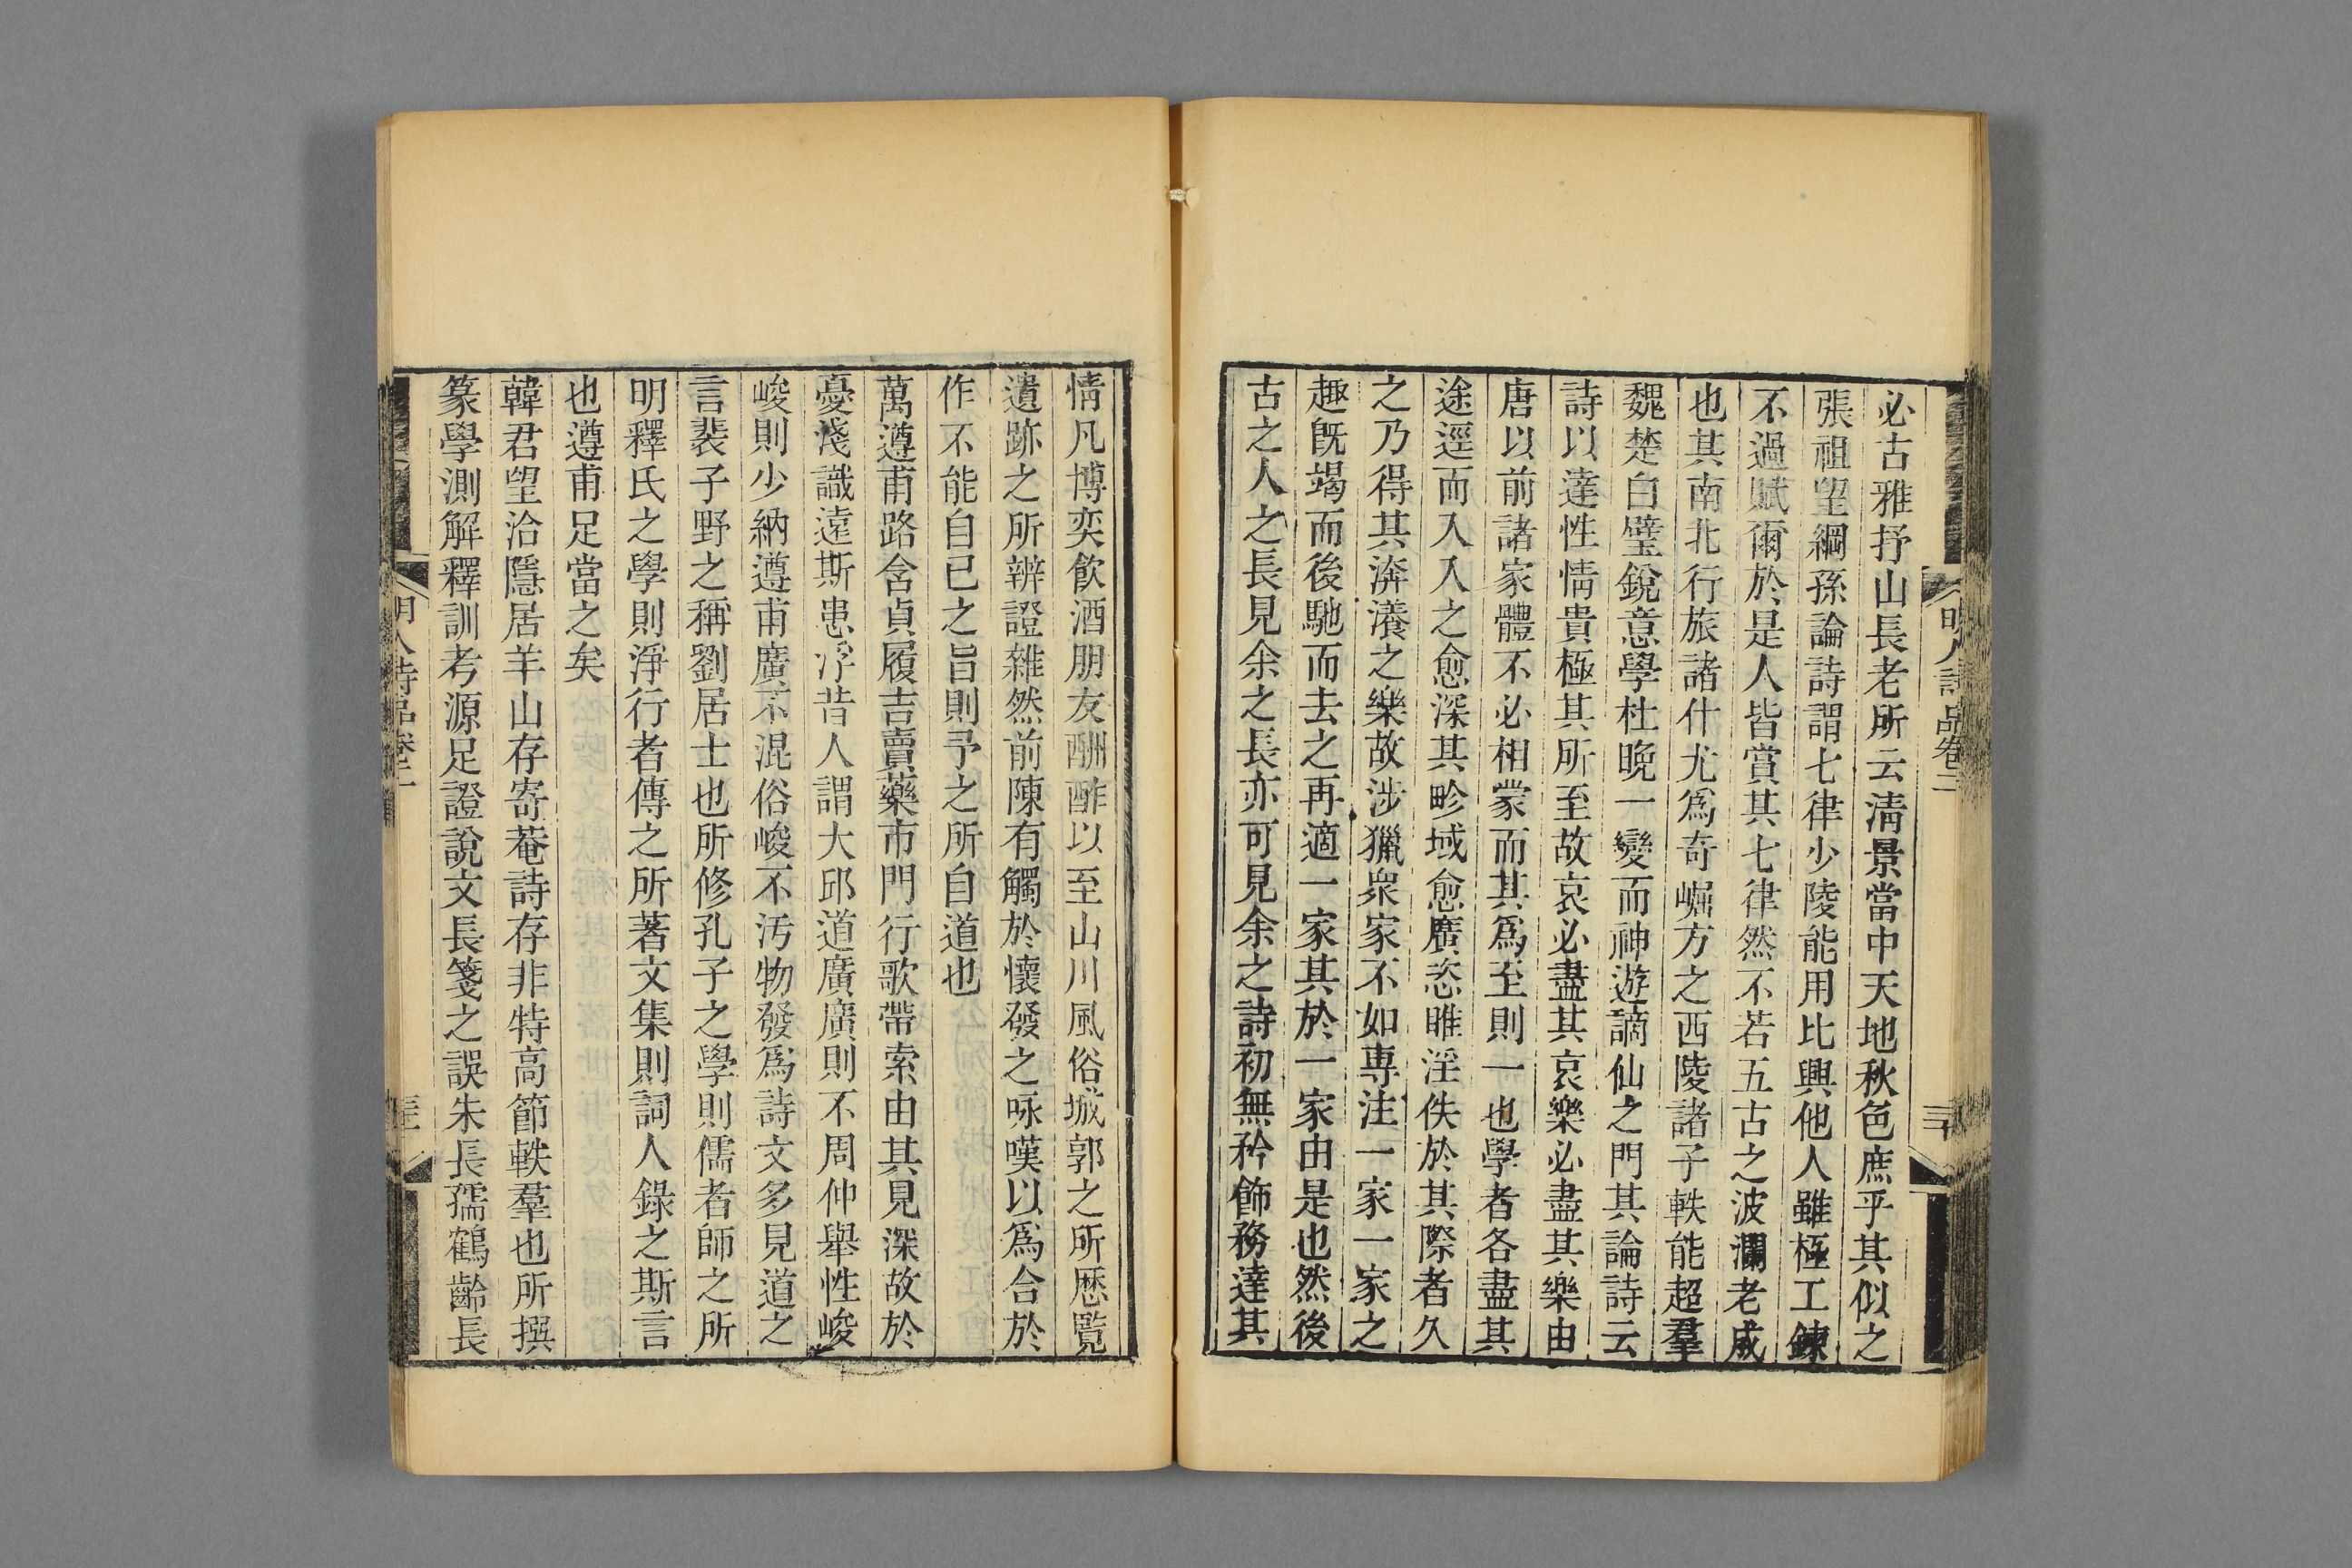 明人詩品卷二
三十
必古雅抒山長老所云淸景當中天地秋色庶乎其似之
張祖望綱孫論詩謂七律少陵能用比興他人雖極工鍊
不過賦爾於是人皆賞其七律然不若五古之波瀾老成
也其南北行旅諸什尤爲奇崛方之西陵諸子軼能超羣
魏楚白璧銳意學杜晩一變而神遊謫仙之門其論詩云
詩以達性情貴極其所至故哀必盡其哀樂必盡其樂由
唐以前諸家體不必相蒙而其爲至則一也學者各盡其
途逕而入入之愈深其畛域愈廣恣睢淫佚於其際者久
之乃得其渀瀁之樂故涉獵衆家不如専注一家一家之
趣旣竭而後馳而去之再適一家其於一家由是也然後
古之人之長見余之長亦可見余之詩初無矜飾務達其
情凡博奕飮酒朋友酬酢以至山川風俗城郭之所歷覧
遺跡之所辨證雜然前陳有觸於懷發之咏嘆以爲合於
作不能自已之旨則予之所自道也
萬遵甫路舍貞履吉賣藥市門行歌帶索由其見深故於
憂淺識遠斯患浮昔人謂大邱道廣廣則不周仲舉性峻
峻則少納遵甫廣不混俗峻不汚物發爲詩文多見道之
言裴子野之稱劉居士也所修孔子之學則儒者師之所
明釋氏之學則淨行者傳之所著文集則詞人錄之斯言
也遵甫足當之矣
韓君望洽隱居羊山存寄菴詩存非特高節軼羣也所撰
篆學測解釋訓考源足證說文長箋之誤朱長孺鶴齡長
明人詩品卷二